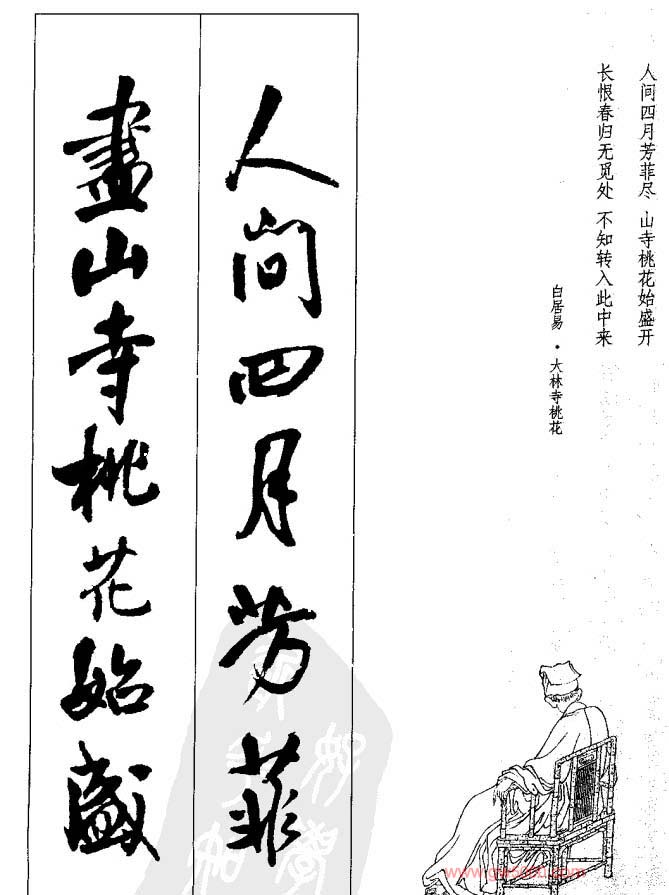 人间四月芳菲尽 山寺桃花始盛开
长恨春归无觅处 不知转入此中来
白居易·大林寺桃花
人间四月芳菲
盡山寺桃花始盛